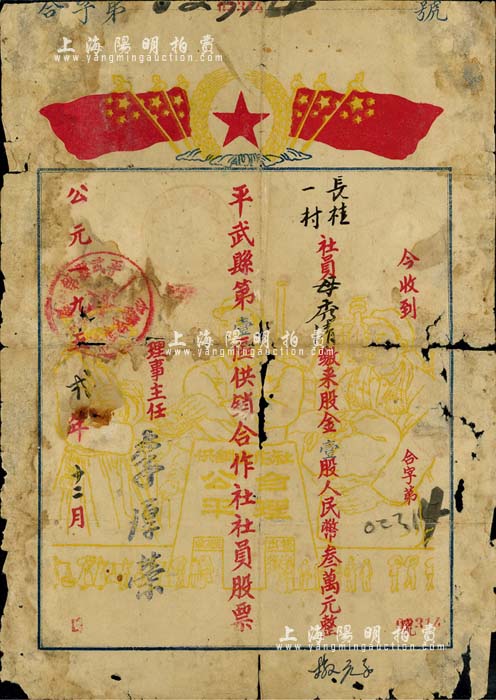 合字第 02314 號
上海陽明拍賣
www.yangmingauction.com
今收到
合字第 02314 號
長桂一村
社員母秀清繳來股金壹股人民幣叁萬元整
平武縣第壹區供銷合作社社員股票
理事主任 李厚榮
公元一九五貳年十二月
上海陽明拍賣
www.yangmingauction.com
公平
合理
02314
上海陽明拍賣
www.yangmingauction.com